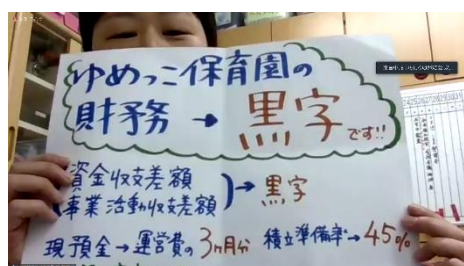 ゆめっこ保育園の
財務→黒字です!!
資金収支差額
事業活動収支差額 →黒字
現預金→運営費の3ヶ月分 積立準備率→45%